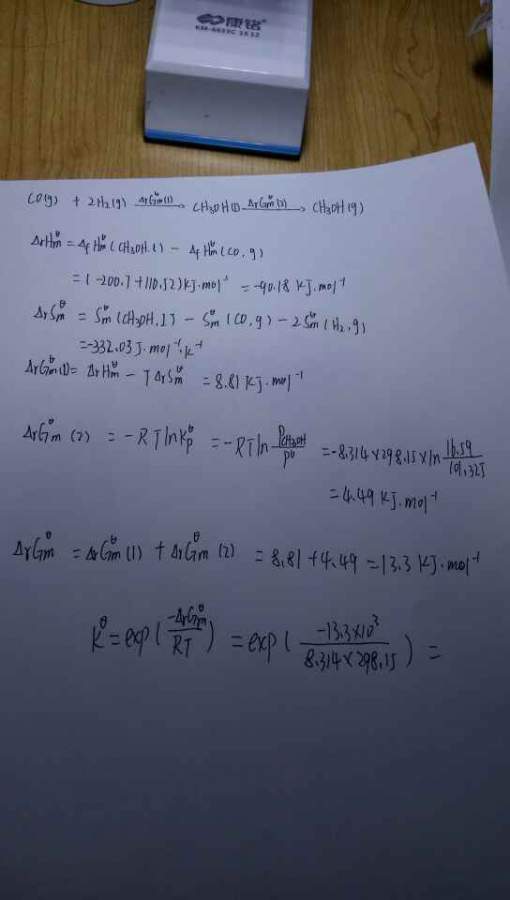 康铭
KM-6633C 1632
CO(g) + 2H₂(g) —ΔrGm^θ(1)→ CH3OH(l) —ΔrGm^θ(2)→ CH3OH(g)
ΔrHm^θ = ΔfHm^θ(CH3OH, l) − ΔfHm^θ(CO, g)
= (-200.7+110.52)kJ·mol⁻¹ = -90.18 kJ·mol⁻¹
ΔrSm^θ = Sm^θ(CH3OH, l) − Sm^θ(CO, g) − 2Sm^θ(H₂, g)
= -332.03 J·mol⁻¹·K⁻¹
ΔrGm^θ(1) = ΔrHm^θ − TΔrSm^θ = 8.81 kJ·mol⁻¹
ΔrGm^θ(2) = −RTlnKp^θ = −RTln P_CH3OH/P^θ = −8.314×298.15×ln 16.59/101.325
= 4.49 kJ·mol⁻¹
ΔrGm^θ = ΔrGm^θ(1) + ΔrGm^θ(2) = 8.81+4.49 = 13.3 kJ·mol⁻¹
K^θ = exp(−ΔrGm^θ/RT) = exp(−13.3×10³/8.314×298.15) =